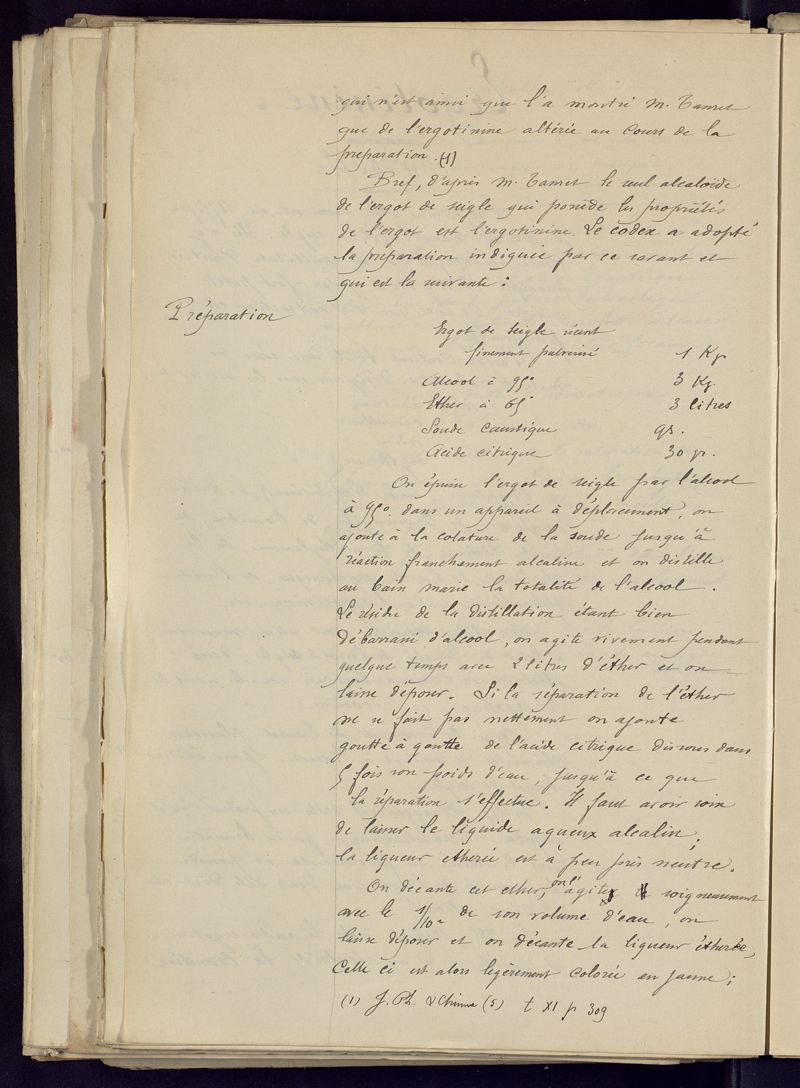 qui n'est ainsi que l'a montré M. Tanret
que de l'ergotinine altérée au cours de la
préparation. (1)
Bref, d'après M. Tanret le seul alcaloïde
de l'ergot de seigle qui possède les propriétés
de l'ergot est l'ergotinine. Le codex a adopté
la préparation indiquée par ce savant et
qui est la suivante :
Préparation
Ergot de seigle récent
finement pulvérisé 1 Kg
Alcool à 95° 3 Kg.
Ether à 65° 3 litres
Soude caustique qs.
Acide citrique 30 gr.
On épuise l'ergot de seigle par l'alcool
à 95° dans un appareil à déplacement, on
ajoute à la colature de la soude jusqu'à
réaction franchement alcaline et on distille
au bain marie la totalité de l'alcool.
Le résidu de la distillation étant bien
débarrassé d'alcool, on agite vivement pendant
quelque temps avec 2 litres d'éther et on
laisse déposer. Si la séparation de l'éther
ne se fait pas nettement on ajoute
goutte à goutte de l'acide citrique dissous dans
5 fois son poids d'eau, jusqu'à ce que
la séparation s'effectue. Il faut avoir soin
de laisser le liquide aqueux alcalin ;
la liqueur etherée est à peu près neutre.
On décante cet ether, on l'agite soigneusement
avec le 1/10e de son volume d'eau, on
laisse déposer et on décante la liqueur étherée,
Celle ci est alors legèrement colorée en jaune ;
(1) J. Ph. & Chimie (5) t XI p 309